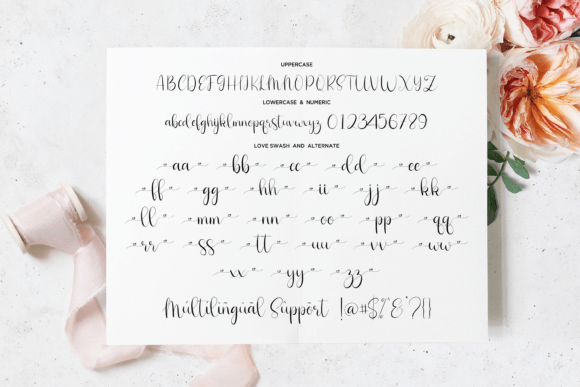 UPPERCASE
ABCDEFGHIJKLMNOPQRSTUVWXYZ
LOWERCASE & NUMERIC
abcdefghijklmnopqrstuvwxyz 0123456789
LOVE SWASH AND ALTERNATE
aa bb cc dd ee
ff gg hh ii jj kk
ll mm nn oo pp qq
rr ss tt uu vv ww
xx yy zz
Multilingual Support !@#$%&*?[]